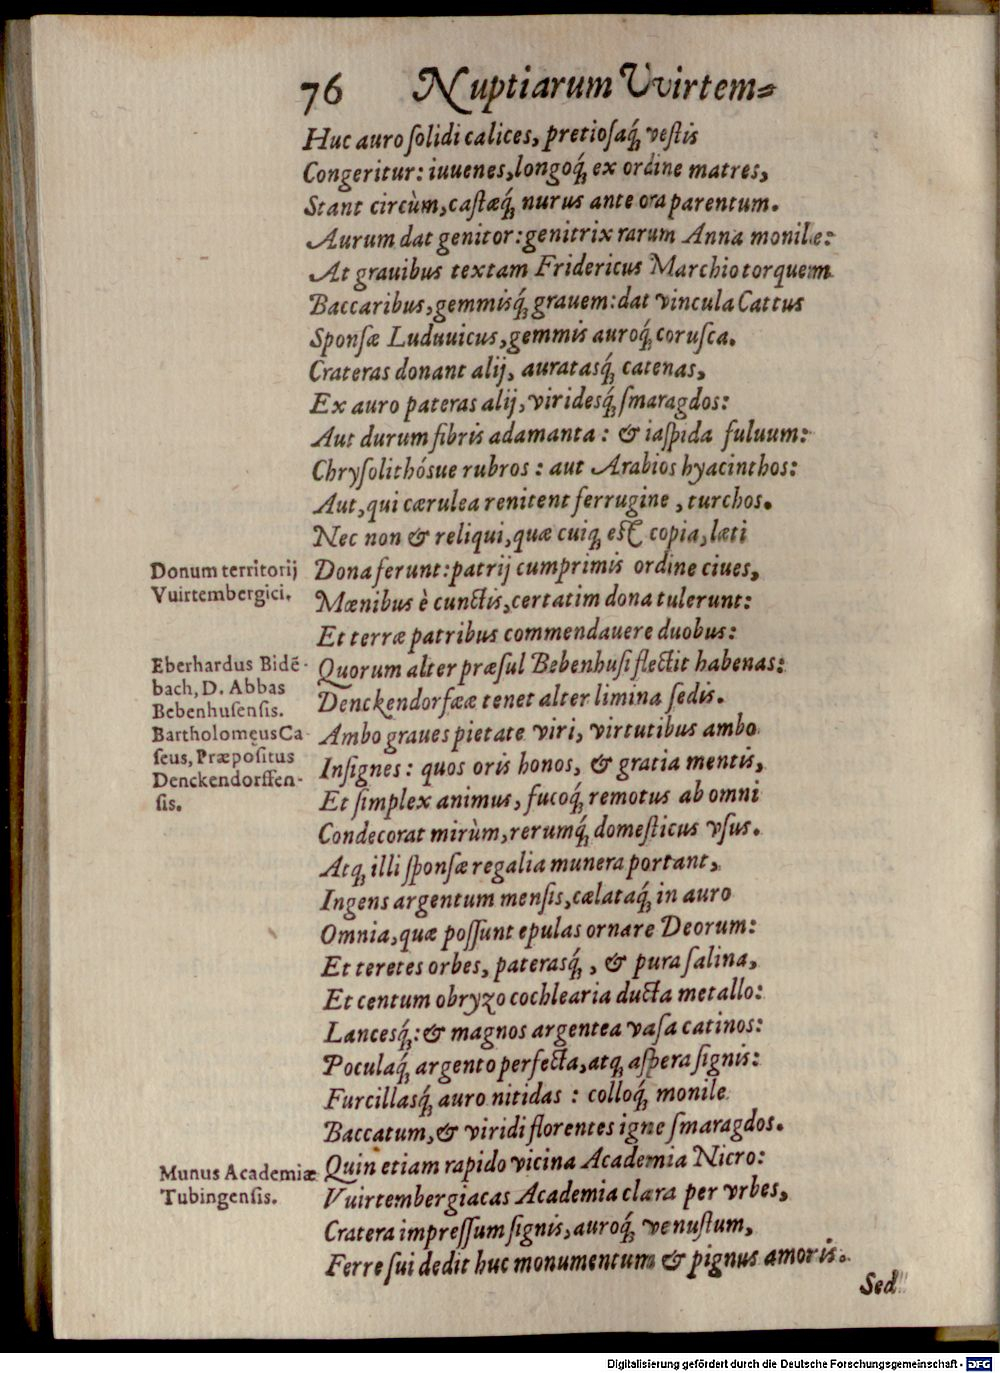 76 Nuptiarum Vvirtem⸗
Huc auro ſolidi calices, pretioſaq́; veſtis
Congeritur: iuuenes, longoq́; ex ordine matres,
Stant circùm, caſtæq́; nurus ante ora parentum.
Aurum dat genitor: genitrix rarum Anna monile:
At grauibus textam Fridericus Marchio torquem
Baccaribus, gemmisq́; grauem: dat vincula Cattus
Sponſæ Luduuicus, gemmis auroq́; coruſca.
Crateras donant alij, auratasq́; catenas,
Ex auro pateras alij, viridesq́; ſmaragdos:
Aut durum fibris adamanta: & iaſpida fuluum:
Chryſolithósue rubros: aut Arabios hyacinthos:
Aut, qui cærulea renitent ferrugine, turchos.
Nec non & reliqui, quæ cuiq; eſt copia, læti
Donum territorij
Vuirtembergici.
Dona ferunt: patrij cumprimis ordine ciues,
Mænibus è cunctis, certatim dona tulerunt:
Et terræ patribus commendauere duobus:
Eberhardus Bidē-
bach, D. Abbas
Bebenhuſenſis.
Bartholomęus Ca-
ſeus, Præpoſitus
Denckendorffen-
ſis.
Quorum alter præſul Bebenhuſi flectit habenas:
Denckendorfææ tenet alter limina ſedis.
Ambo graues pietate viri, virtutibus ambo
Inſignes: quos oris honos, & gratia mentis,
Et ſimplex animus, fucoq́; remotus ab omni
Condecorat mirùm, rerumq́; domeſticus vſus.
Atq; illi ſponſæ regalia munera portant,
Ingens argentum menſis, cælataq́; in auro
Omnia, quæ poſſunt epulas ornare Deorum:
Et teretes orbes, paterasq́;, & pura ſalina,
Et centum obryzo cochlearia ducta metallo:
Lancesq́;: & magnos argentea vaſa catinos:
Poculaq́; argento perfecta, atq; aſpera ſignis:
Furcillasq́; auro nitidas: colloq́; monile
Baccatum, & viridi florentes igne ſmaragdos.
Munus Academiæ
Tubingenſis.
Quin etiam rapido vicina Academia Nicro:
Vuirtembergiacas Academia clara per vrbes,
Cratera impreſſum ſignis, auroq́; venuſtum,
Ferre ſui dedit huc monumentum & pignus amoris.
Sed
Digitalisierung gefördert durch die Deutsche Forschungsgemeinschaft - DFG